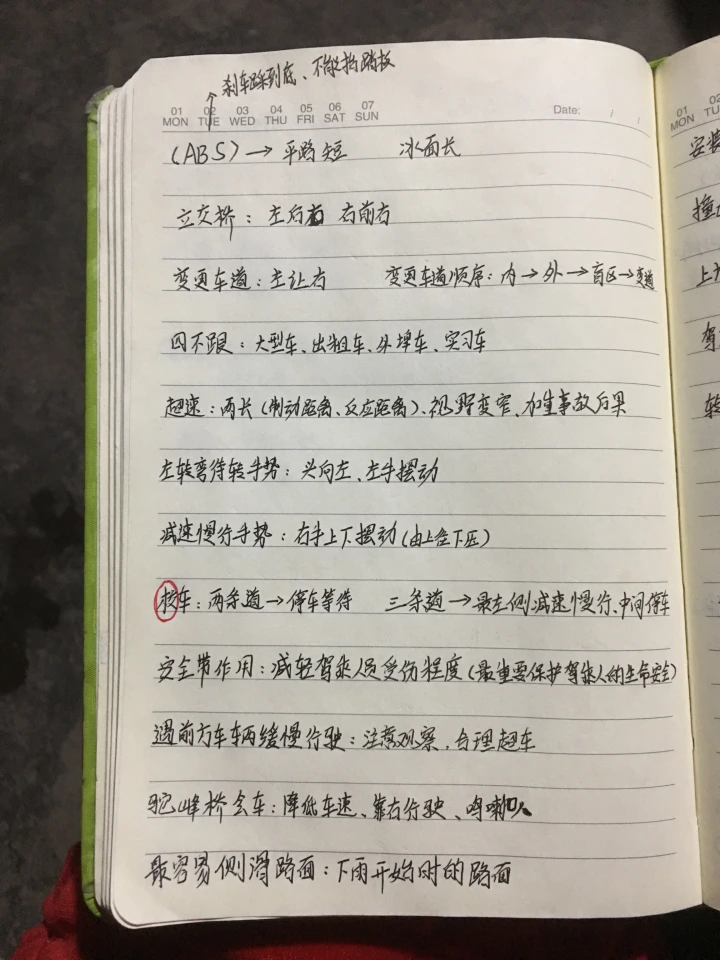 刹车踩到底、不能抬踏板
01 02 03 04 05 06 07
MON TUE WED THU FRI SAT SUN
Date: / /
(ABS)→平路短 冰面长
立交桥：左后右 右前右
变更车道：左让右 变更车道顺序：内→外→盲区→变道
四不跟：大型车、出租车、外埠车、实习车
超速：两长(制动距离、反应距离)、视野变窄、加重事故后果
左转弯待转手势：头向左、左手摆动
减速慢行手势：右手上下摆动(由上至下压)
校车：两条道→停车等待 三条道→最左侧减速慢行、中间停车
安全带作用：减轻驾乘人员受伤程度(最重要保护驾乘人的生命安全)
遇前方车辆缓慢行驶：注意观察，合理超车
驼峰桥会车：降低车速、靠右行驶、鸣喇叭
最容易侧滑路面：下雨开始时的路面
01
MON
安装
撞
上
驾
转